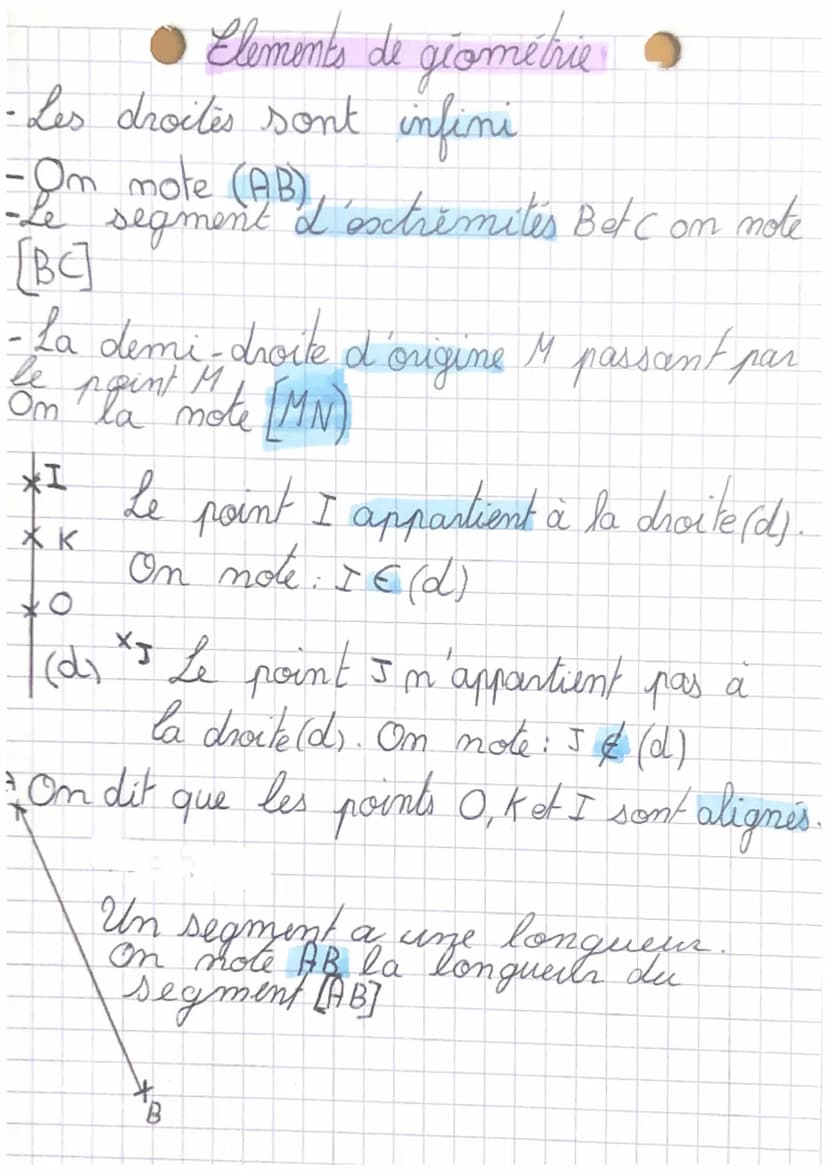 Elements de géométrie
- Les droites sont infini
- On note (AB)
- Le segment d'extrémités B et C on note
[BC]
- La demi-droite d'origine M passant par
le point M,
On la note [MN)
I
Le point I appartient à la droite (d).
K
On note : I ∈ (d)
O
(d) J Le point J n'appartient pas à
la droite (d). On note : J ∉ (d)
A
On dit que les points O, K et I sont alignés.
Un segment a une longueur.
On note AB la longueur du
segment [AB]
B